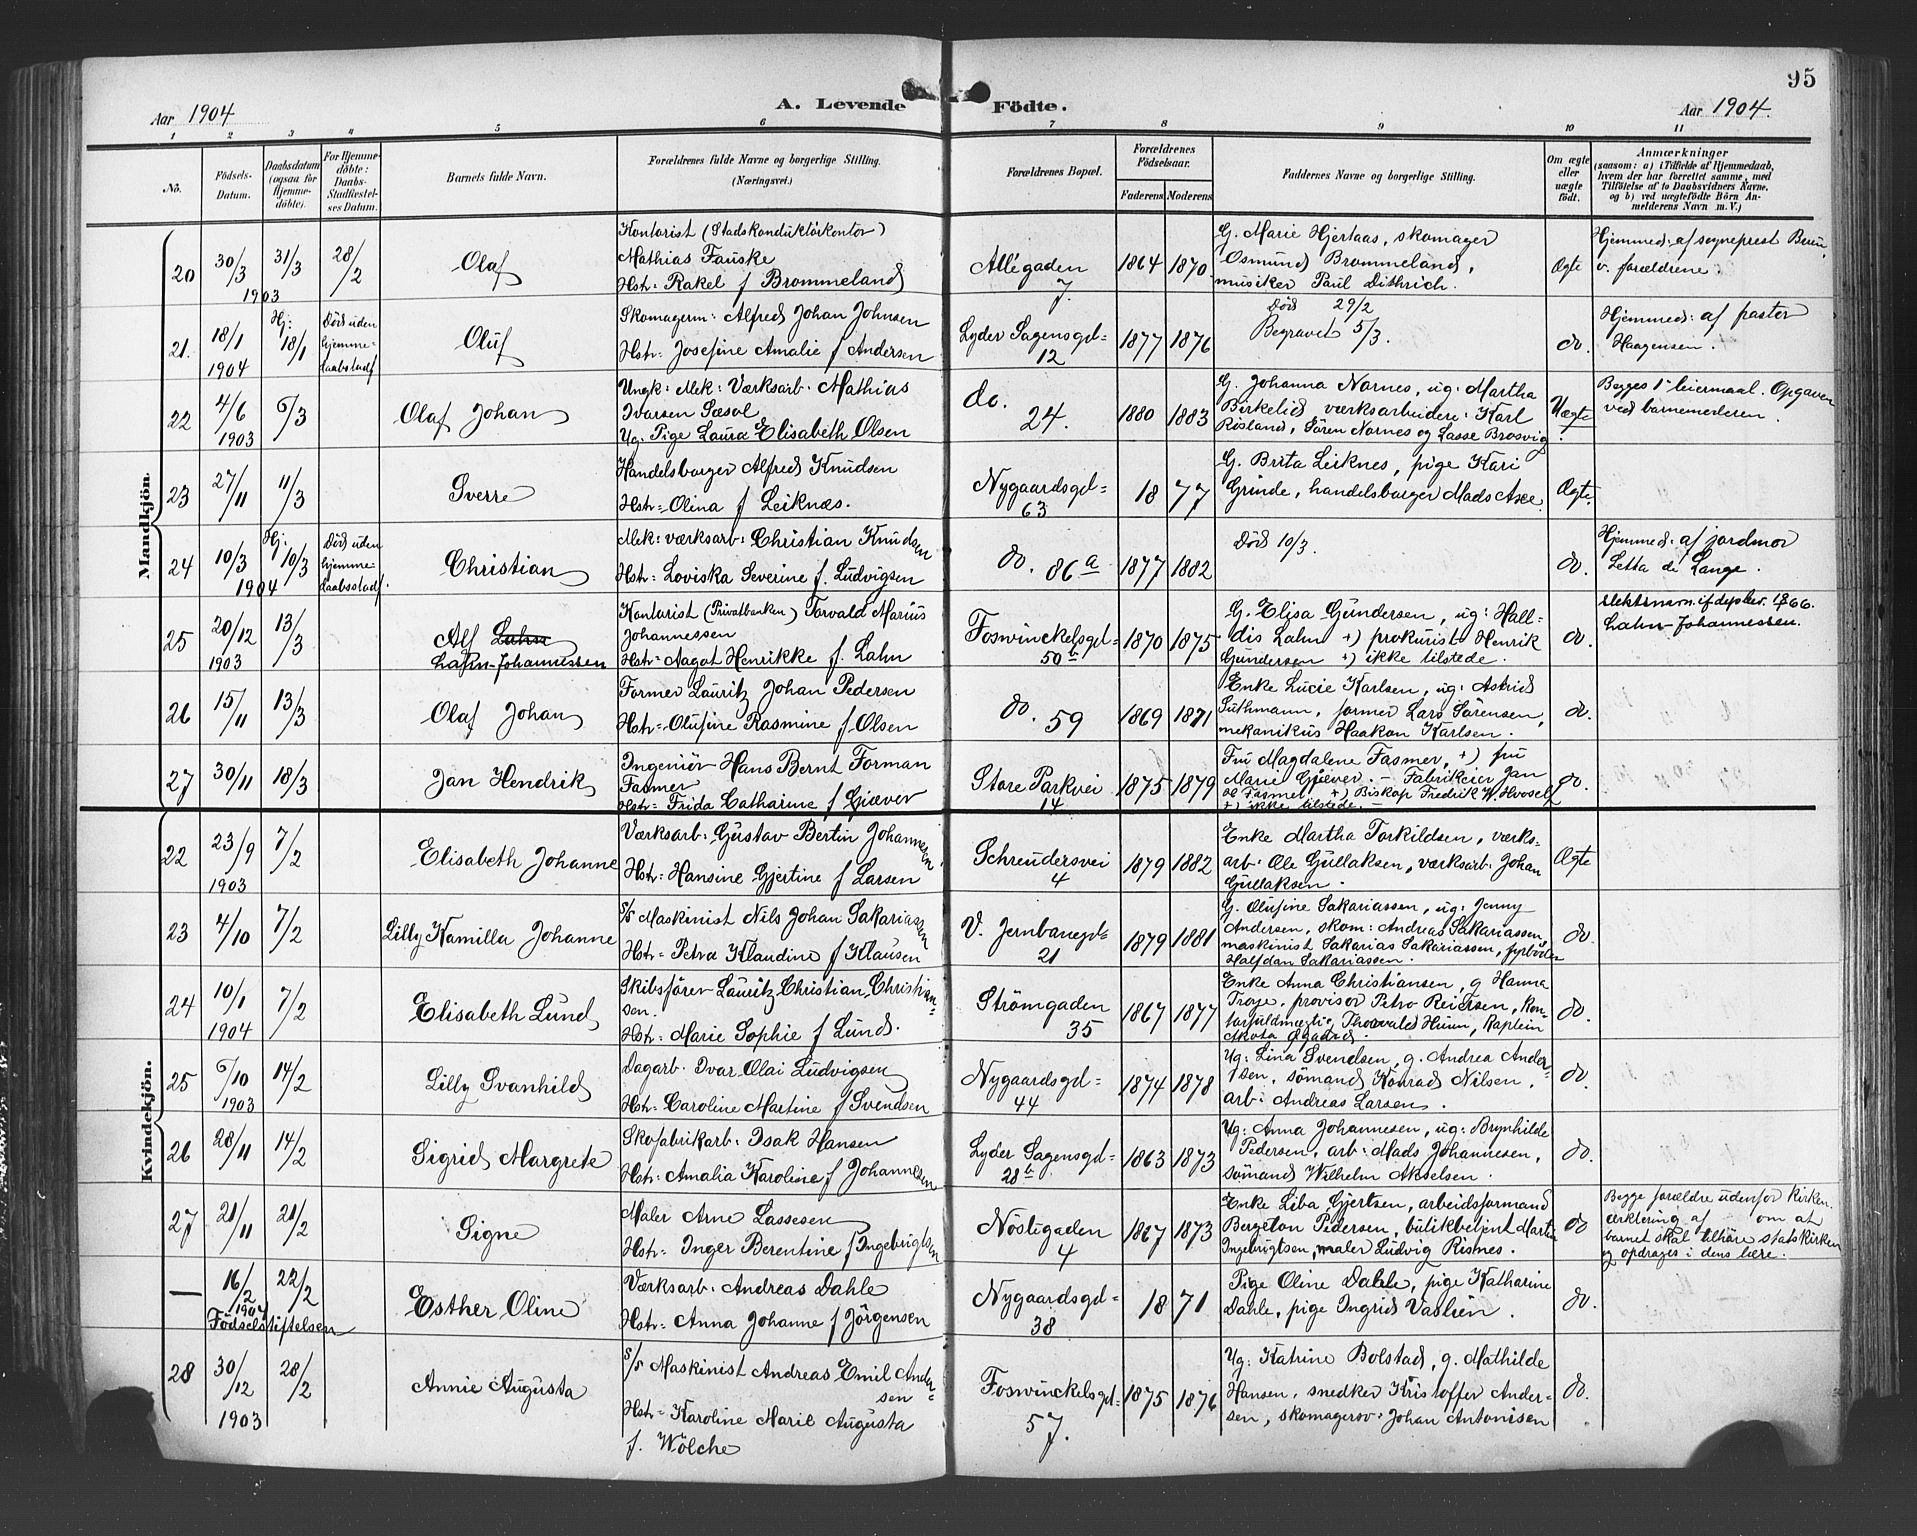 95
Aar 1904
A. Levende Födte.
Aar 1904.
1 2 3 4 5 6 7 8 9 10 11
No.
Födsels-
Datum.
Daabsdatum
(ogsaa for
Hjemme-
döbte).
For Hjemme-
döbte:
Daabs-
Stadfæstel-
ses Datum.
Barnets fulde Navn.
Forældrenes fulde Navne og borgerlige Stilling.
(Næringsvei.)
Forældrenes Bopæl.
Forældrenes
Födselsaar.
Faderens Moderens
Faddernes Navne og borgerlige Stilling.
Om ægte
eller
uægte
födt.
Anmærkninger
(saasom: a) i Tilfælde af Hjemmedaab,
hvem der har forrettet samme, med
Tilföielse af to Daabsvidners Navne,
og b) ved uægtefödte Börn An-
melderens Navn m. V.)
Mandkjön.
20 30/3 31/3 28/2
1903
Olaf
Kontorist (Stadskonduktörkontor)
Mathias Fauske
Hstr: Rakel f Brommeland
Allégaden
7.
1864 1870
G. Marie Hjertaas, skomager
Osmund Brommeland,
musiker Paul Dithrich.
Ægte
Hjemmed: af sogneprest
v. forældrene
21. 18/1 Hj: 18/1
1904
Död uden
hjemme-
daabsstadf
Oluf
Skomagerm: Alfred Johan Johnsen
Hstr: Josefine Amalie f Andersen
Lyder Sagensgd=
12
1877 1876
Död 29/2
Begravet 5/3.
do.
Hjemmed: af pastor
Haagensen.
22 4/6 6/3
1903
Olaf Johan
Ungk: Mek: Værksarb. Mathias
Ivarsen Sæsol
Ug. Pige Laura Elisabeth Olsen
do.
24.
1880 1883
G. Johanna Nornes, ug: Martha
Birkelid, værksarbeidere: Karl
Rösland, Sören Nornes og Lasse Brosvig
Uægte
Begges 1ste leiermaal. Opgaven
ved barnemoderen.
23 27/11 11/3
Sverre
Handelsborger Alfred Knudsen
Hstr: Olina f Leiknæs.
Nygaardsgd=
63
1877
G. Brita Leiknes, pige Kari
Grinde, handelsborger Mads Axe
Ægte
24 10/3 Hj: 10/3
1904
Död uden
hjemme-
daabsstadf.
Christian
Mek: værksarb: Christian Knudsen
Hstr: Loviska Severine f. Ludvigsen
do. 86 a
1877 1882
Död 10/3.
do.
Hjemmed: af jordmor
Letta de Lange.
25 20/12 13/3
1903
Alf Lahn
Lahn-Johannessen
Kontorist (Privatbanken) Torvald Marius
Johannessen
Hstr: Aagot Henrikke f. Lahn
Foswinckelsgd=
50 b
1870 1875
G. Elisa Gundersen, ug: Hall-
dis Lahn +) prokurist Henrik
Gundersen +) ikke tilstede.
do.
Slektsnavn if.
Lahn-Johannessen.
26 15/11 13/3
Olaf Johan
Former Lauritz Johan Pedersen
Hstr: Olufine Rasmine f Olsen
do. 59
1869 1871
Enke Lucie Karlsen, ug: Astrid
Suthmann, former Lars Sörensen,
mekanikus Haakon Karlsen.
do.
27 30/11 18/3
Jan Hendrik
Ingeniör Hans Bernt Forman
Fasmer
Hstr: Frida Catharine f Gjæver
Store Parkvei
14
1875 1879
Fru Magdalene Fasmer, +) fru
Marie Gjæver. - Fabrikeier Jan
Fasmer +) Biskop Fredrik W. Hvoslef
+) ikke tilstede. -
do.
Kvindekjön.
22 23/9 7/2
1903
Elisabeth Johanne
Værksarb: Gustav Bertin Johannesen
Hstr: Hansine Gjertine f Larsen
Schreudersvei
4
1879 1882
Enke Martha Torkildsen, værks-
arb: Ole Gullaksen, værksarb: Johan
Gullaksen.
Ægte
23 4/10 7/2
Lilly Kamilla Johanne
S/S Maskinist Nils Johan Sakariassen
Hstr: Petra Klaudine f Klausen
V. Jernbanegd=
21
1879 1881
G. Olufine Sakariassen, ug: Jenny
Andersen, skom: Andreas Sakariassen,
maskinist Sakarias Sakariassen, fyrböder
Halfdan Sakariassen.
do.
24 10/1 7/2
1904
Elisabeth Lund
Skibsförer Lauritz Christian Christian-
sen.
Hstr: Marie Sophie f Lund.
Strömgaden
35
1867 1877
Enke Anna Christiansen, g Hanna
Troje, provisor Petro Reiersen, Kon-
torfuldmægtig Thorvald Huun, Kaptein
do.
25 6/10 14/2
1903
Lilly Svanhild
Dagarb. Ivar Olai Ludvigsen
Hstr: Caroline Martine f Svendsen
Nygaardsgd=
44
1874 1878
Ug: Lina Svendsen, g. Andrea Ander-
sen, sömand Konrad Nilsen,
arb: Andreas Larsen.
do.
26 28/11 14/2
Sigrid Margrete
Skofabrikarb: Isak Hansen
Hstr: Amalia Karoline f Johannesen
Lyder Sagensgd=
28 b
1863 1873
Ug: Anna Johannesen, ug: Brynhilde
Pedersen, arb: Mads Johannesen,
sömand Wilhelm Akselsen
do.
27 21/11 21/2
Signe
Maler Arne Lassesen
Hstr: Inger Berentine f Ingebrigtsen
Nöstegaden
4
1867 1873
Enke Liba Gjertsen, arbeidsformand
Bergeton Pedersen, butikbetjent Martin
Ingebrigtsen, maler Ludvig Risnes.
do
Begge forældre udenfor kirken
ærklæring af om at
barnet skal tilhöre statskirken
og opdrages i dens lære.
— 16/2 22/2
1904
Födselsstiftelsen
Esther Oline
Værksarb. Andreas Dahle
Hstr: Anna Johanne f Jörgensen
Nygaardsgd=
38
1871
Pige Oline Dahle, pige Katharine
Dahle, pige Ingrid Vaslien.
do.
28 30/12 28/2
1903
Annie Augusta
S/S Maskinist Andreas Emil Ander-
sen
Hstr: Karoline Marie Augusta
f. Wölche
Foswinckelsgd=
57.
1875 1876
Ug: Katrine Bolstad, g. Mathilde
Hansen, snedker Kristoffer Ander-
sen, skomagersv: Johan Antonisen
do.